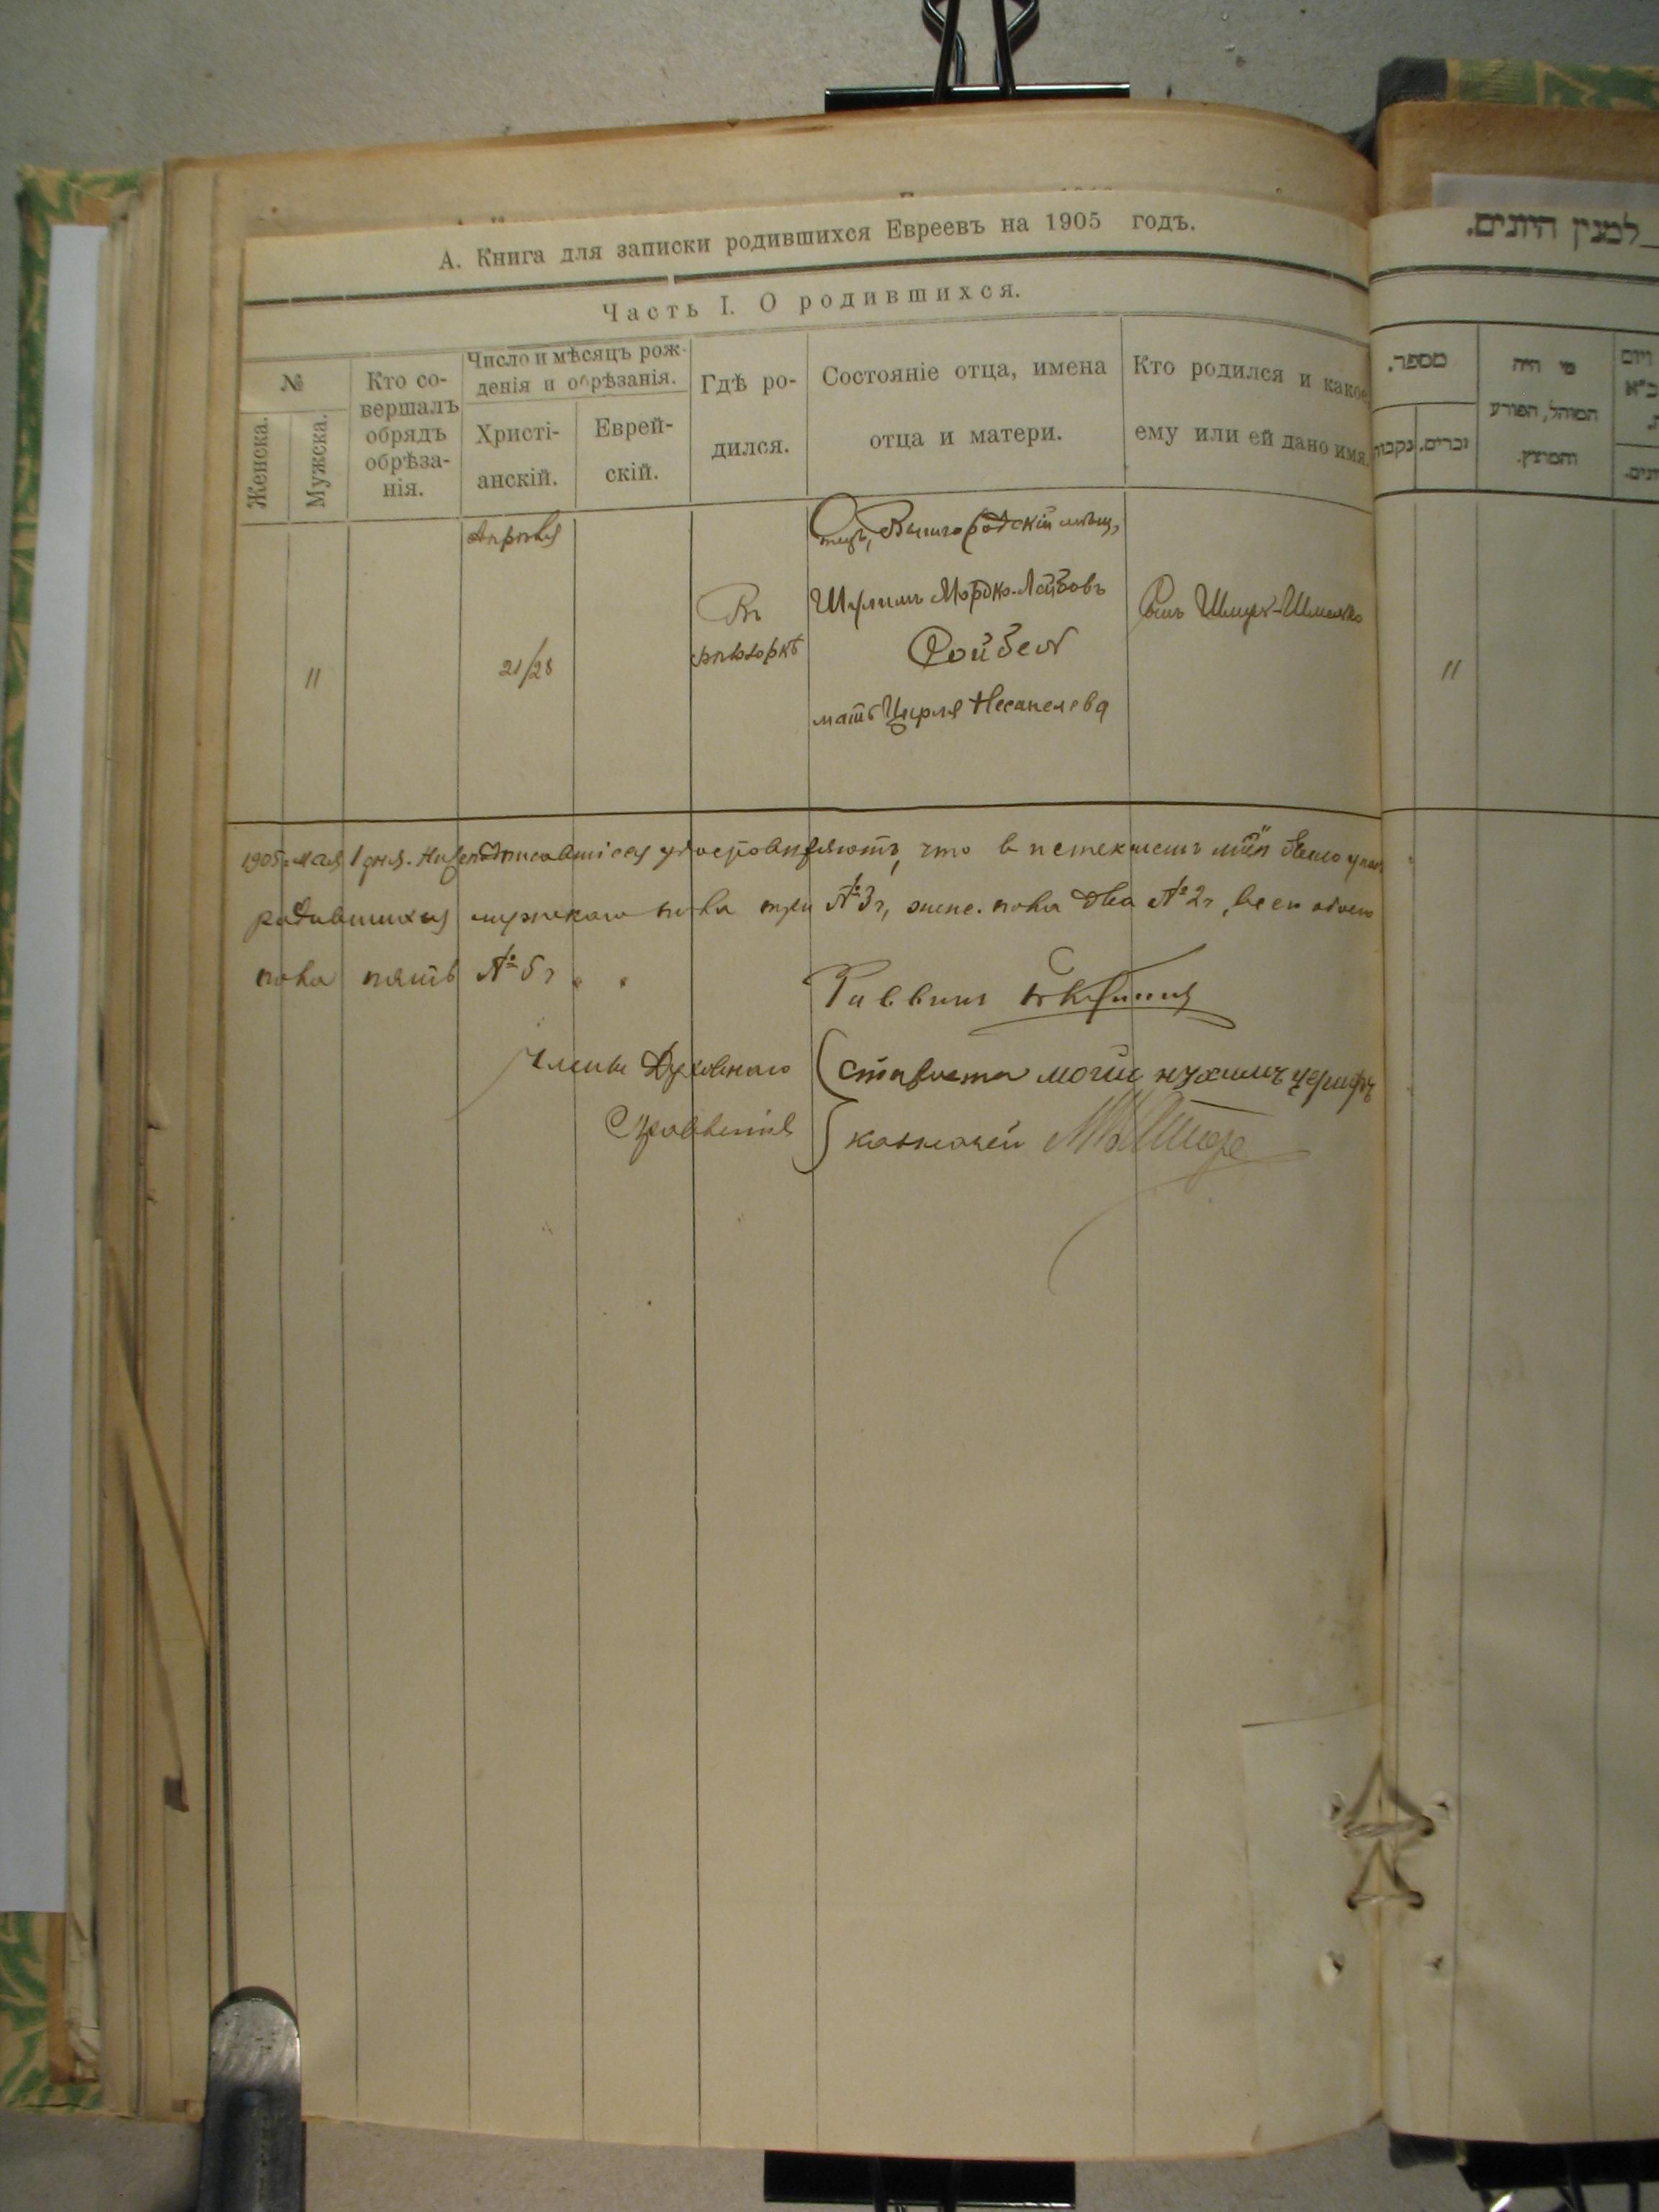 А. Книга для записки родившихся Евреевъ на 1905 годъ.
Часть I. О родившихся.
№
Женска.
Мужска.
Кто со-
вершалъ
обрядъ
обрѣза-
нія.
Число и мѣсяцъ рож-
денія и обрѣзанія.
Христі-
анскій.
Еврей-
скій.
Гдѣ ро-
дился.
Состояніе отца, имена
отца и матери.
Кто родился и какое
ему или ей дано имя.
11
Апрѣля
21/28
Въ
Отецъ, Вышгородскій мѣщ,
Шулимъ Мордко-Лейбовъ
Ройзен
мать Цирля Несанелева
Сынъ Шмуль-Шмелко
1905 мая 1 дня. Нижеподписавшіеся удостовѣряютъ, что в истекшемъ м-цѣ было
родившихся мужскаго пола три №3, женс. пола два №2, всего обоего
пола пять №5
Раввинъ
Члены Духовнаго
Правленія
Староста нухимъ
казначей
למנין היונים.
מספר.
נקבות
זכרים.
מי היה
המוהל, הפורע
והמוצץ.
11